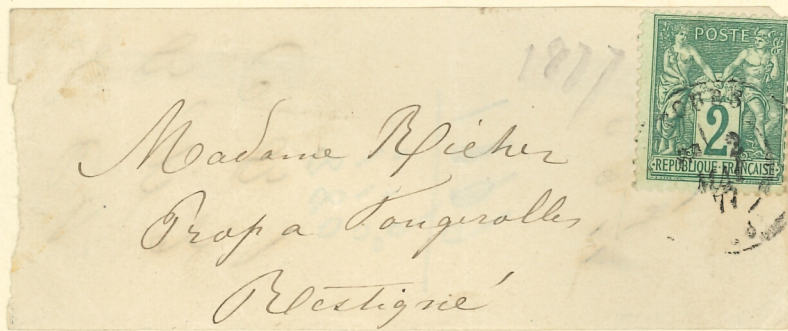 1877
POSTE
2
REPUBLIQUE FRANÇAISE
Madame Richer
Prop a Fougerolles
Restigné